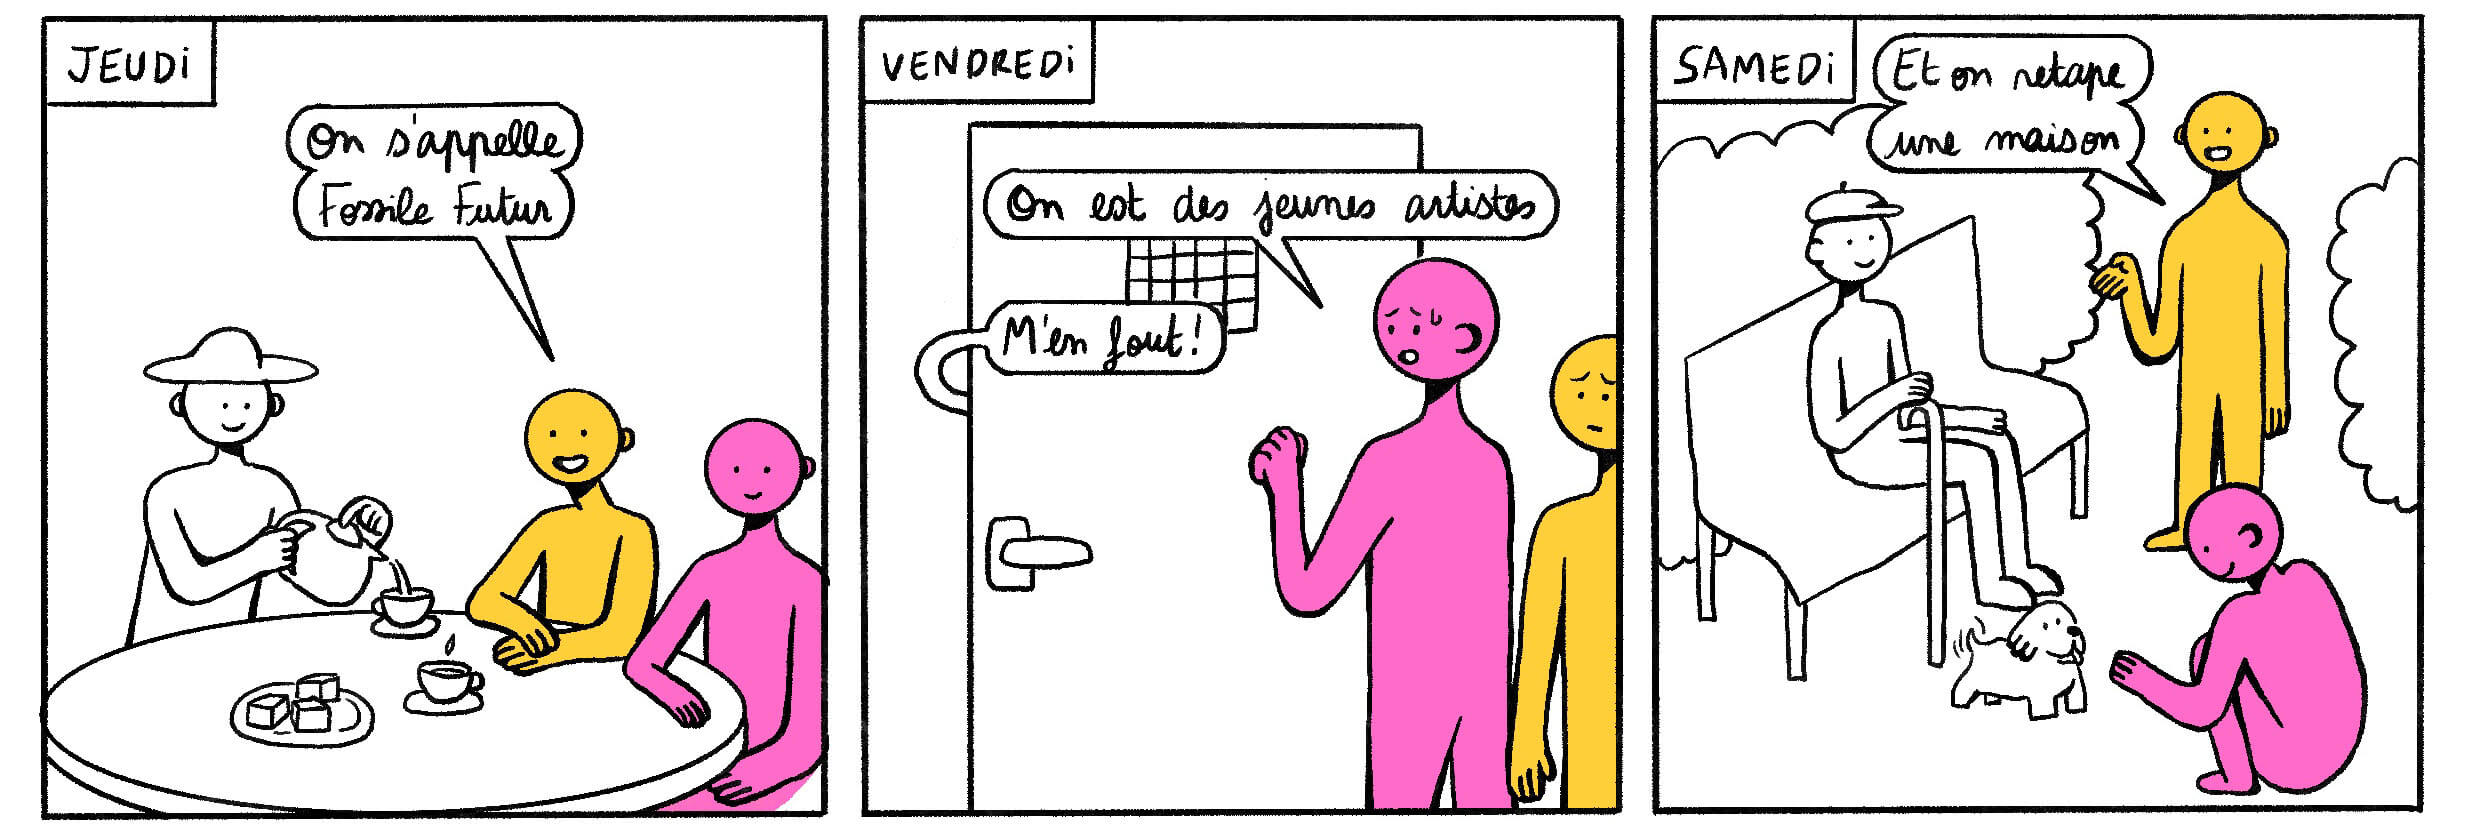 JEUDI
On s'appelle
Fossile Futur
VENDREDI
On est des jeunes artistes
M'en fout!
SAMEDI
Et on retape
une maison